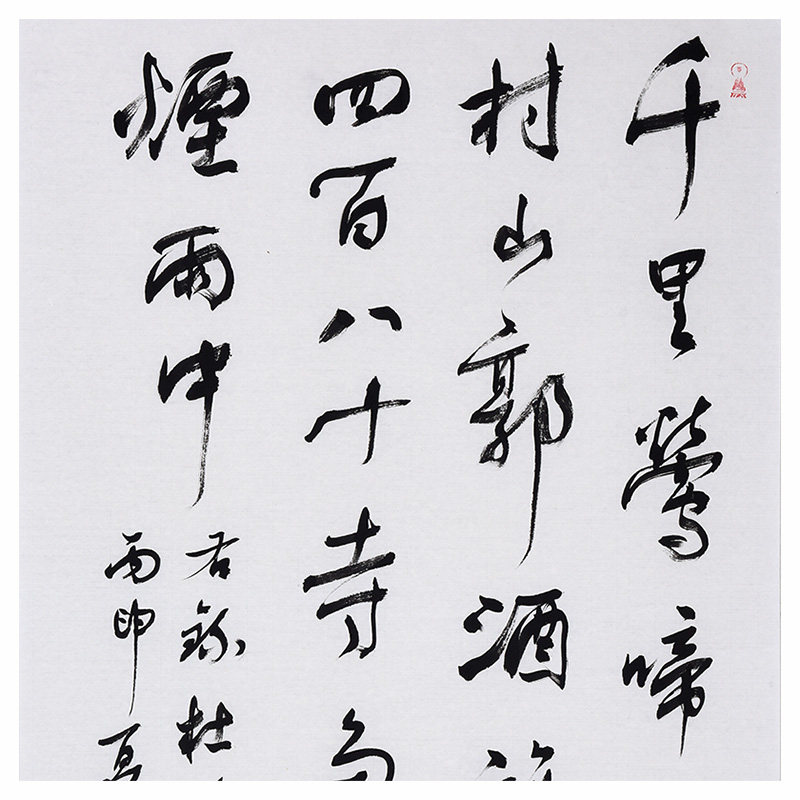 千里鶯啼
村山郭酒
四百八十寺多
煙雨中
右錄杜
丙申夏